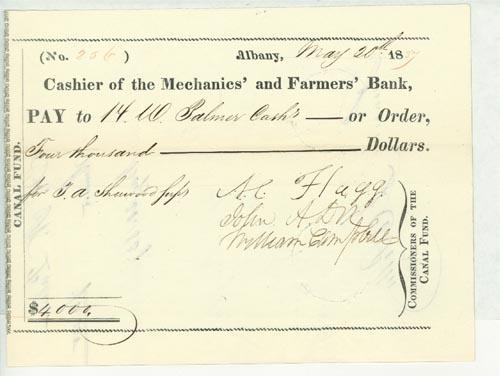 (No. 256) Albany, May 20th 1837
Cashier of the Mechanics' and Farmers' Bank,
PAY to H. W. Palmer Cash'r or Order,
Four thousand Dollars.
for
A. C. Flagg
John A. Dix
William Campbell
COMMISSIONERS OF THE
CANAL FUND.
CANAL FUND.
$4000